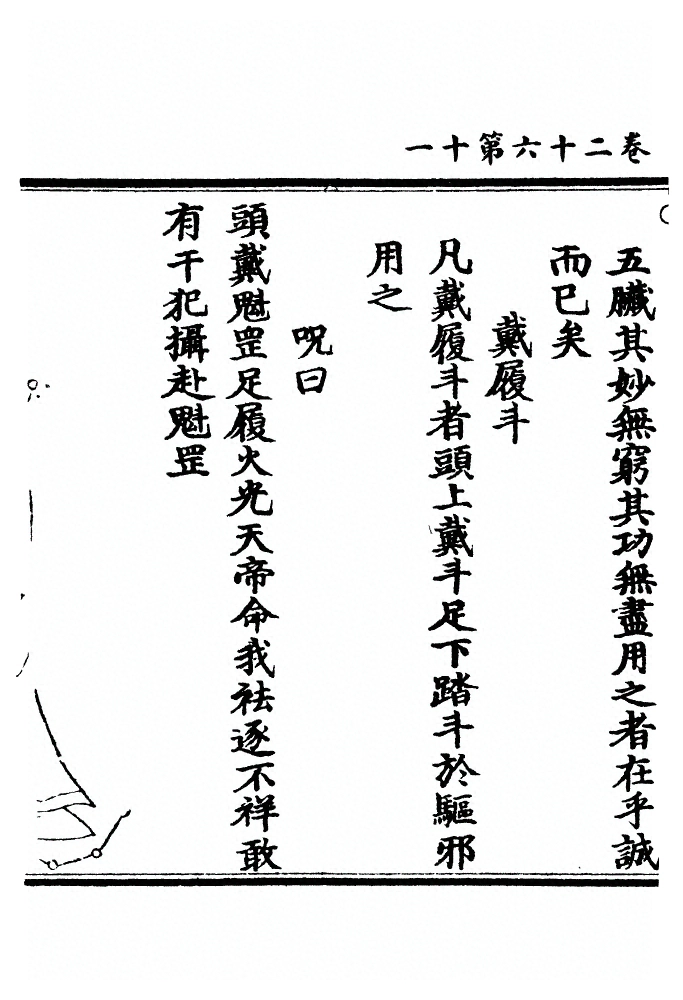 卷二十六第十一
五臟其妙無窮其功無盡用之者在乎誠
而已矣
戴履斗
凡戴履斗者頭上戴斗足下踏斗於驅邪
用之
呪曰
頭戴魁罡足履火光天帝命我祛逐不祥敢
有干犯攝赴魁罡